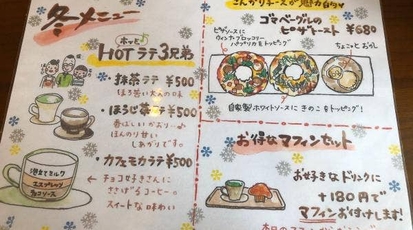 冬メニュー
ホッと♪
HOTラテ3兄弟
・抹茶ラテ ¥500
ほろ苦い大人の味
・ほうじ茶ラテ ¥500
香ばしいかおり♪
ほんのり甘い
しあがりです。
・カフェモカラテ ¥500
← チョコ好きさんに
ささげるコーヒー。
スイートな味わい
泡立てミルク
エスプレッソ
チョコソース
こんがりチーズが魅力的♥
ゴマベーグルの
ピザトースト ¥680
ピザソースに
ウィンナ・ブロッコリー
パプリカをトッピング
ちょこっとおかし
自家製ホワイトソースにきのこをトッピング!
お得なマフィンセット
お好きなドリンクに
+180円で
マフィンお付けします!